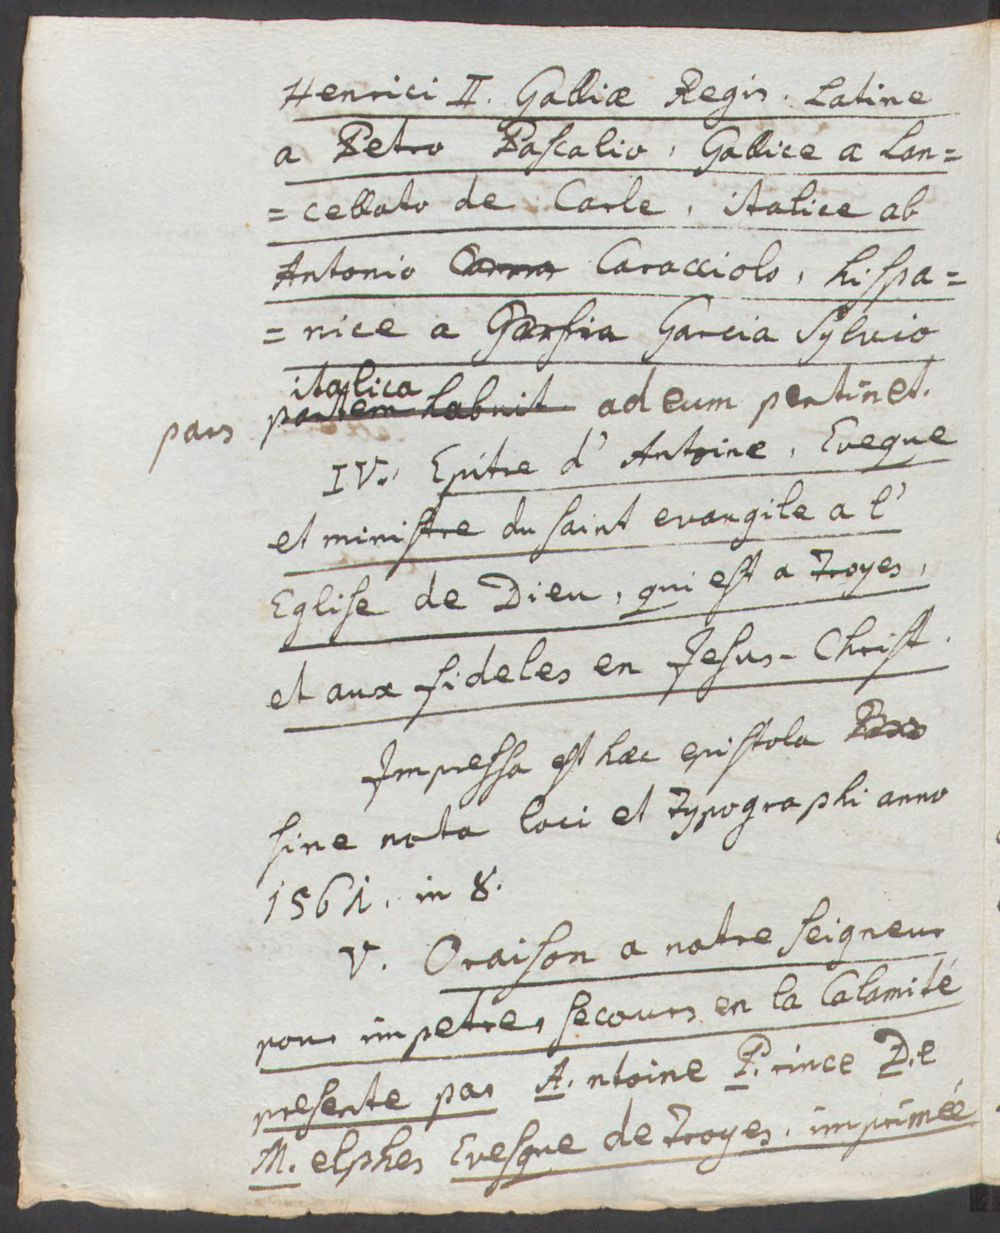 Henrici II. Galliæ Regis. Latine
a Petro Pascalio, Gallice a Lan=
=cellato de Carle, italice ab
Antonio Caracciolo, hispa=
=nice a Garsia Garcia Sylvio
italica
pars partem habuit ad eum pertinet.
IV. Epitre d'Antoine, Eveque
et ministre du saint evangile a l'
Eglise de Dieu, qui est a Troyes,
et aux fideles en Jesus-Christ.
Impressa est hæc epistola
sine nota loci et typographi anno
1561. in 8.
V. Oraison a notre seigneur
pour impetrer secours en la Calamité
presente par A. ntoine P. rince D. e
M. elphes Evesque de Troyes, imprimée